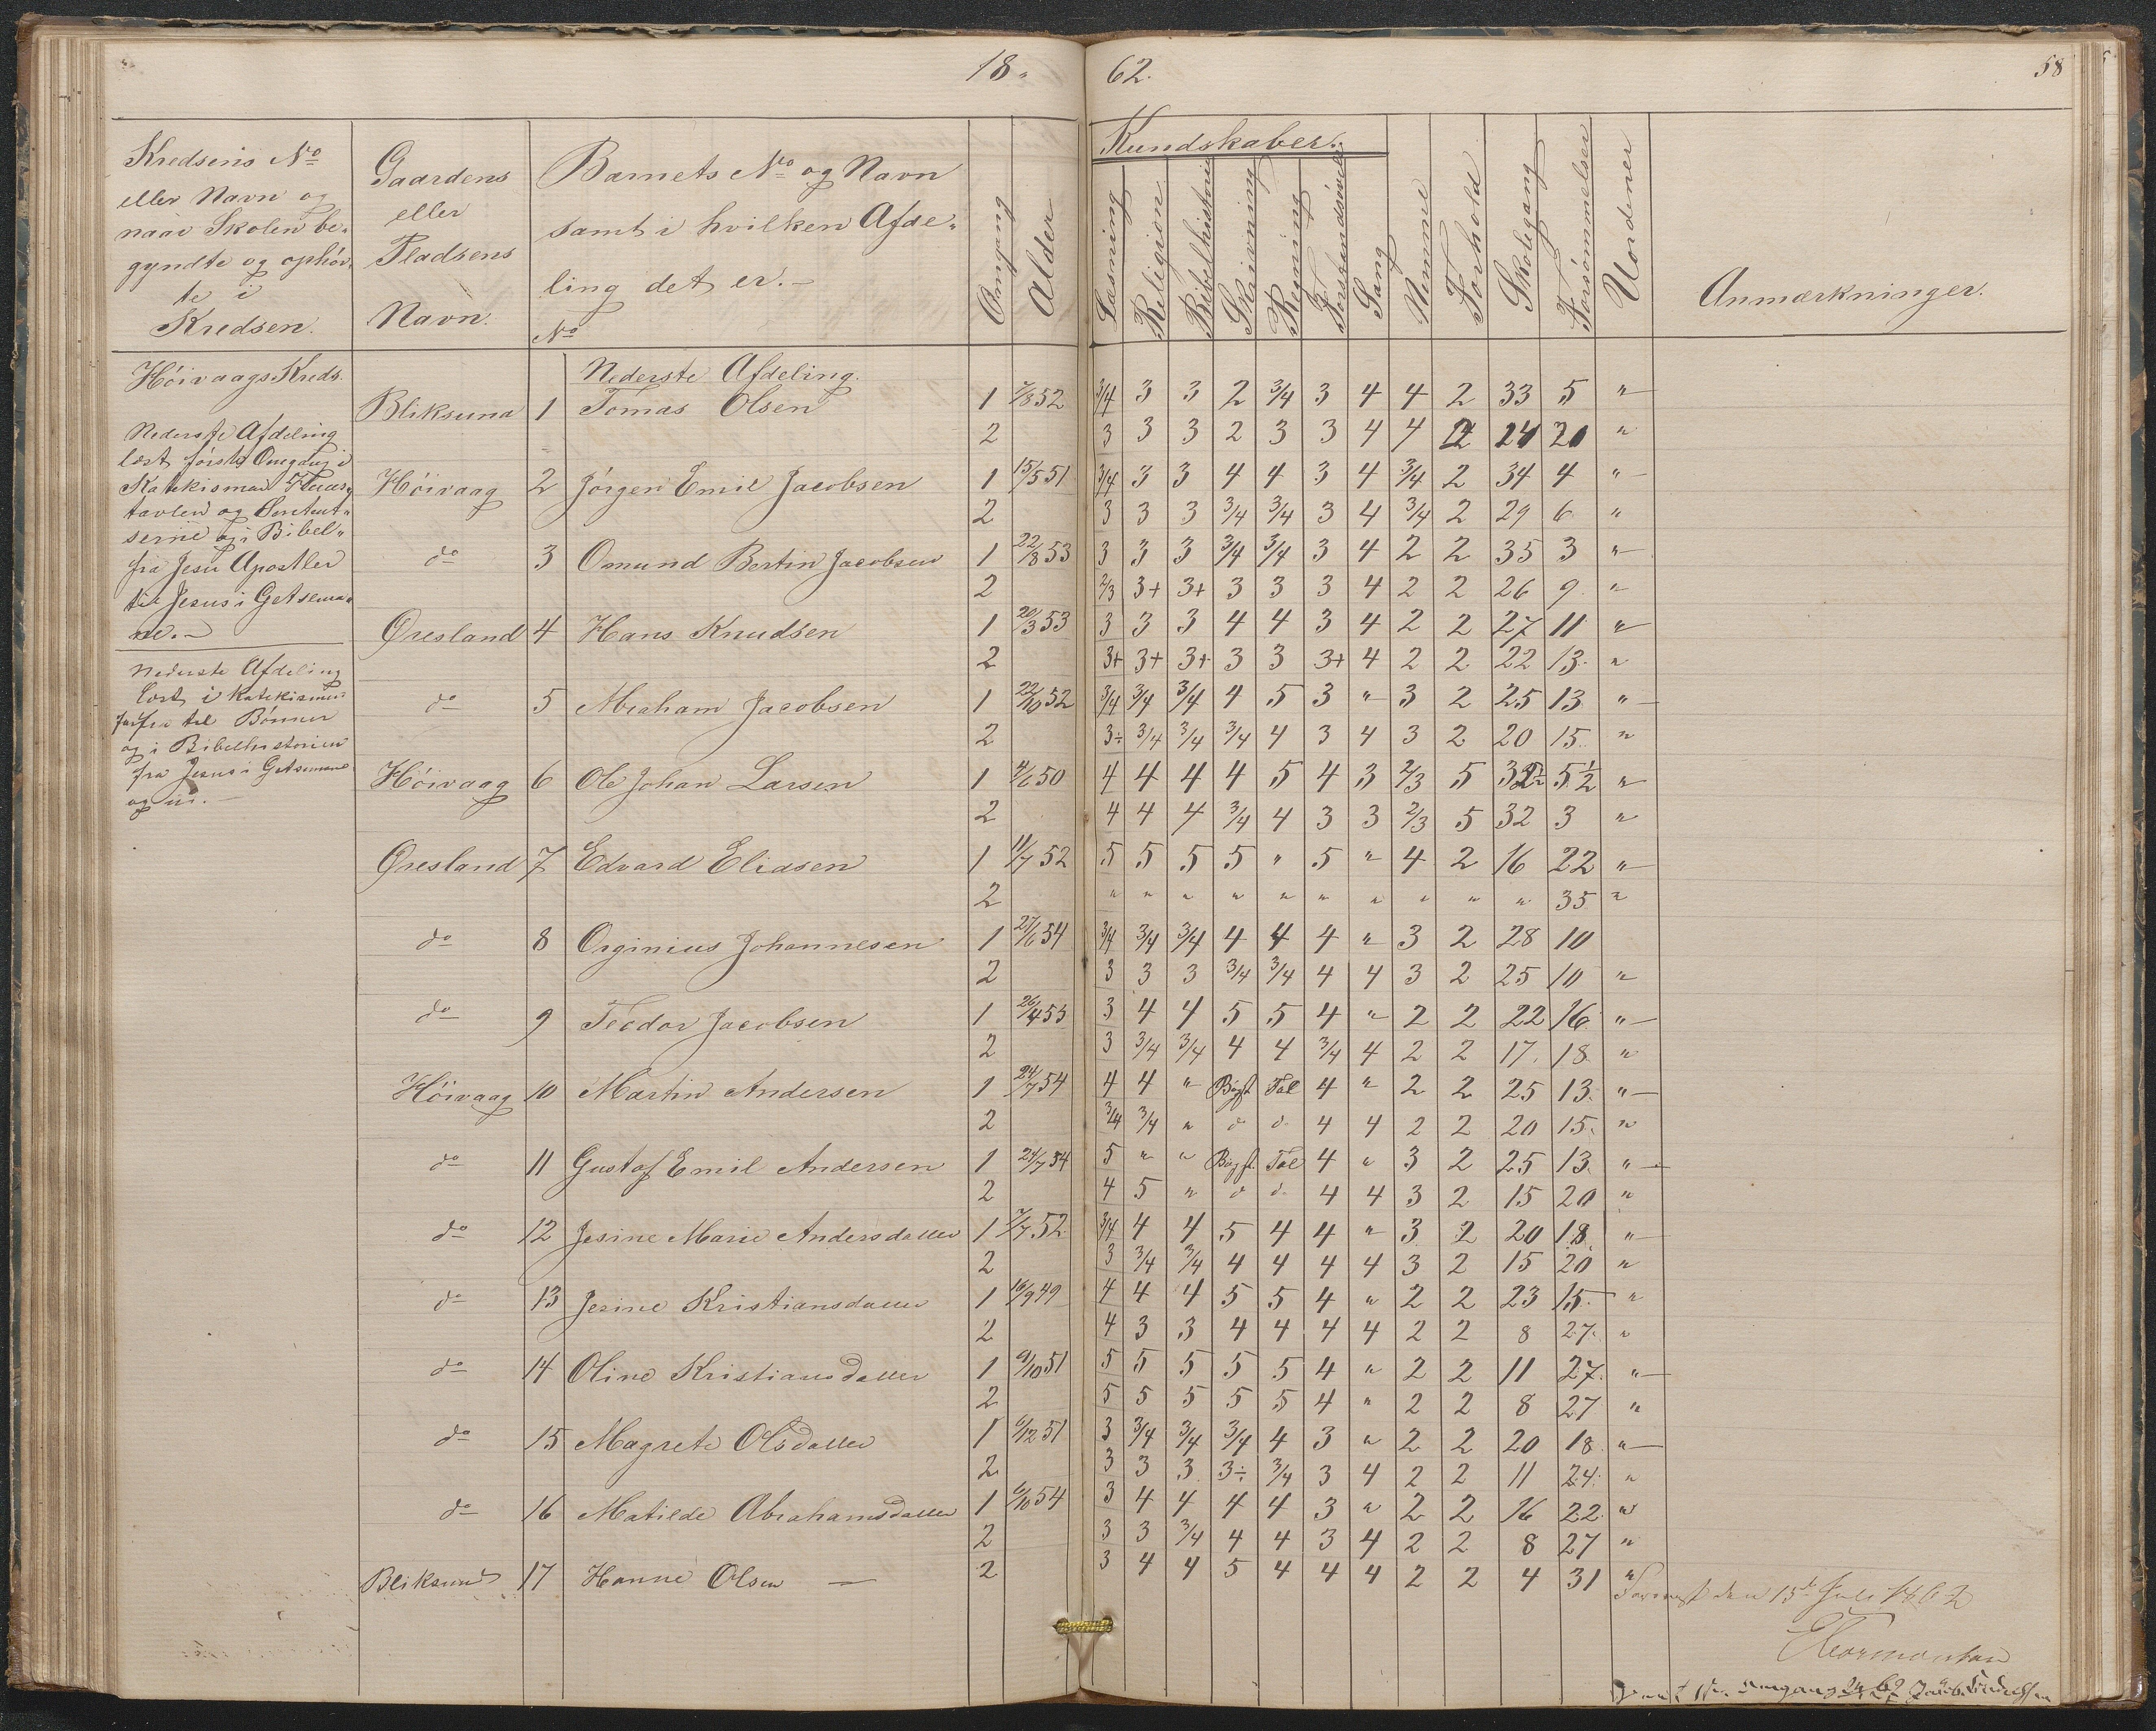 18 62. 58
Kredsens No
eller Navn og
naar Skolen be-
gyndte og ophör-
te i
Kredsen.
Gaardens
eller
Pladsens
Navn.
Barnets No og Navn
samt i hvilken Afde-
ling det er.
No
Omgang
Alder
Kundskaber.
Læsning
Religion
Bibelhistorie
Skrivning
Regning
Forstandsøvelse
Sang
Nemme
Forhold
Skolegang
Forsømmelser
Uordener
Anmærkninger.
Höivaags Kreds.
Nederste Afdeling
læst første Omgang i
Katekismen
tavlen og
og i Bibel-
fra Jesu Apostler
til Jesus i Getsema-
ne.
Nederste Afdeling
læst i Katekismus
fra til Bønner
og i Bibelhistorien
fra Jesus i Getsemane
og ud.
Nederste Afdeling.
Bliksund 1 Tomas Olsen 1 7/8 52 3/4 3 3 2 3/4 3 4 4 2 33 5 "
2 3 3 3 2 3 3 4 4 2 24 20 "
Höivaag 2 Jörgen Emil Jacobsen 1 15/5 51 3/4 3 3 4 4 3 4 3/4 2 34 4 "
2 3 3 3 3/4 3/4 3 4 3/4 2 29 6 "
do 3 Omund Bertin Jacobsen 1 22/8 53 3 3 3 3/4 3/4 3 4 2 2 35 3 "
2 2/3 3+ 3+ 3 3 3 4 2 2 26 9 "
Øresland 4 Hans Knudsen 1 20/3 53 3 3 3 4 4 3 4 2 2 27 11 "
2 3+ 3+ 3+ 3 3 3+ 4 2 2 22 13 "
do 5 Abraham Jacobsen 1 22/10 52 3/4 3/4 3/4 4 5 3 " 3 2 25 13 "
2 3÷ 3/4 3/4 3/4 4 3 4 3 2 20 15 "
Höivaag 6 Ole Johan Larsen 1 4/6 50 4 4 4 4 5 4 3 2/3 5 32½ 5½ "
2 4 4 4 3/4 4 3 3 2/3 5 32 3 "
Øresland 7 Edvard Eliasen 1 11/7 52 5 5 5 5 " 5 " 4 2 16 22 "
2 " " " " " " " " " " 35 "
do 8 Orginius Johannesen 1 27/6 54 3/4 3/4 3/4 4 4 4 " 3 2 28 10
2 3 3 3 3/4 3/4 4 4 3 2 25 10 "
do 9 Teodor Jacobsen 1 26/4 53 3 4 4 5 5 4 " 2 2 22 16 "
2 3 3/4 3/4 4 4 3/4 4 2 2 17 18 "
Höivaag 10 Martin Andersen 1 24/7 54 4 4 " Bogst. Tal 4 " 2 2 25 13 "
2 3/4 3/4 " d d 4 4 2 2 20 15 "
do 11 Gustaf Emil Andersen 1 24/7 54 5 " " Bogst. Tal 4 " 3 2 25 13 "
2 4 5 " d d 4 4 3 2 15 20 "
do 12 Jesine Marie Andersdatter 1 7/7 52 3/4 4 4 5 4 4 " 3 2 20 18 "
2 3 3/4 3/4 4 4 4 4 3 2 15 20 "
do 13 Jesine Kristiansdatter 1 16/9 49 4 4 4 5 5 4 " 2 2 23 15 "
2 4 3 3 4 4 4 4 2 2 8 27 "
do 14 Oline Kristiansdatter 1 9/10 51 5 5 5 5 5 4 " 2 2 11 27 "
2 5 5 5 5 5 4 " 2 2 8 27 "
do 15 Magrete Olsdatter 1 6/12 51 3 3/4 3/4 3/4 4 3 " 2 2 20 18 "
2 3 3 3 3÷ 3/4 3 4 2 2 11 24 "
do 16 Matilde Abrahamsdatter 1 6/10 54 3 4 4 4 4 3 " 2 2 16 22 "
2 3 3 3/4 4 4 3 4 2 2 8 27 "
Bliksund 17 Hanne Olsen 2 3 4 4 5 4 4 4 2 2 4 31 "
den 15de Juli 1862
Thormonsen